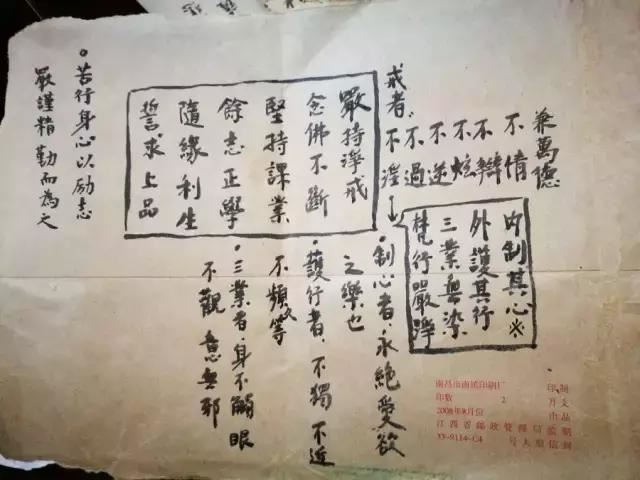 兼萬德
不情
不辯
不炫
不逆
不過
戒者、不淫→
内制其心※
外護其行
三業無染
梵行嚴淨
嚴持淨戒
念佛不斷
堅持課業
餘志正學
隨緣利生
誓求上品
。制心者，永絶愛欲
之樂也
。護行者、不獨不近
不頻等
。三業者、身不觸眼
不觀 意無邪
。苦行身心以励志
嚴謹精勤而為之
印刷厂 印制
印数 2
2008年9月份 出品
江西省邮政管理局监制
号大型信封